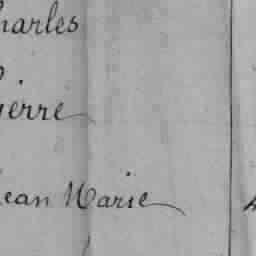 harles
ierre
Jean Marie